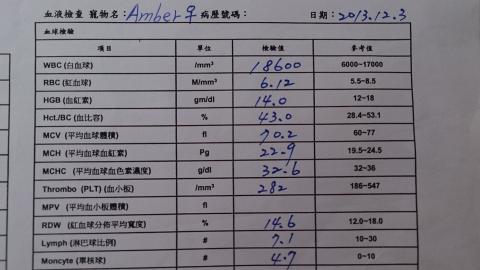 血液檢查 寵物名：Amber♀ 病歷號碼： 日期：2013.12.3
血球檢驗
項目 單位 檢驗值 參考值
WBC (白血球) /mm³ 18600 6000~17000
RBC (紅血球) M/mm³ 6.12 5.5~8.5
HGB (血紅素) gm/dl 14.0 12~18
Hct./BC (血比容) % 43.0 28.4~53.1
MCV (平均血球體積) fl 70.2 60~77
MCH (平均血球血紅素) Pg 22.9 19.5~24.5
MCHC (平均血球血色素濃度) g/dl 32.6 32~36
Thrombo (PLT) (血小板) /mm³ 282 186~547
MPV (平均血小板體積) fl
RDW (紅血球分佈平均寬度) % 14.6 12.0~18.0
Lymph (淋巴球比例) # 7.1 10~30
Moncyte (單核球) # 4.7 0~10